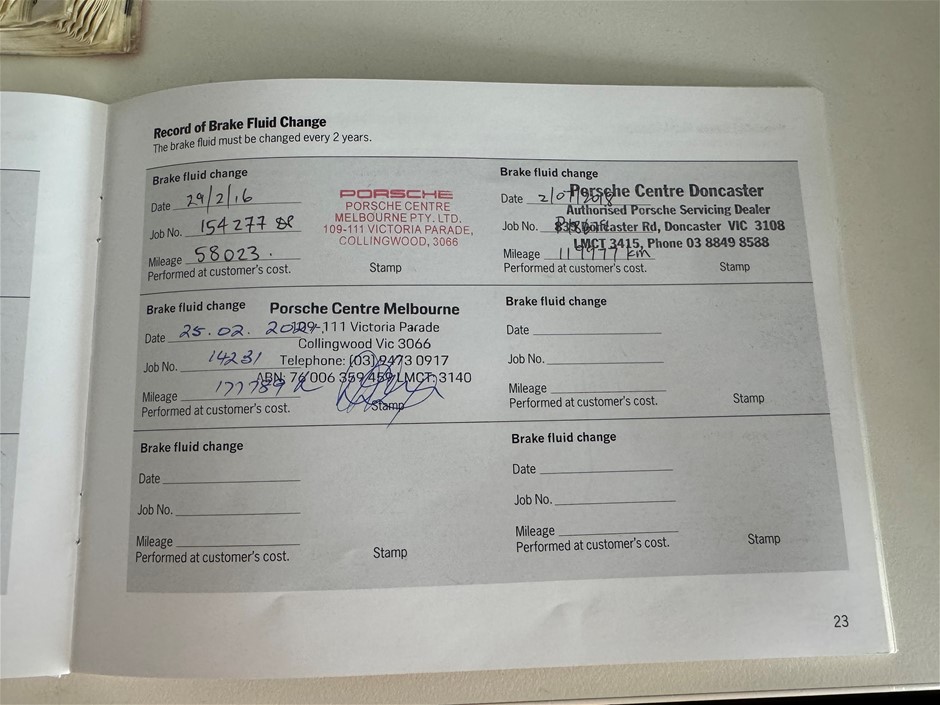 Record of Brake Fluid Change
The brake fluid must be changed every 2 years.
Brake fluid change
Date 29/2/16
Job No. 154277
Mileage 58023.
Performed at customer's cost.
PORSCHE
PORSCHE CENTRE
MELBOURNE PTY. LTD.
109-111 VICTORIA PARADE,
COLLINGWOOD, 3066
Stamp
Brake fluid change
Date
Job No.
Mileage
Performed at customer's cost.
Porsche Centre Doncaster
Authorised Porsche Servicing Dealer
Doncaster Rd, Doncaster VIC 3108
LMCT 3415, Phone 03 8849 8588
km
Stamp
Brake fluid change
Date 25.02.
Job No. 14231
Mileage 177789
Performed at customer's cost.
Porsche Centre Melbourne
109-111 Victoria Parade
Collingwood Vic 3066
Telephone: (03) 9473 0917
ABN: 76 006 359 459 LMCT: 3140
Stamp
Brake fluid change
Date
Job No.
Mileage
Performed at customer's cost.
Stamp
Brake fluid change
Date
Job No.
Mileage
Performed at customer's cost.
Stamp
Brake fluid change
Date
Job No.
Mileage
Performed at customer's cost.
Stamp
23